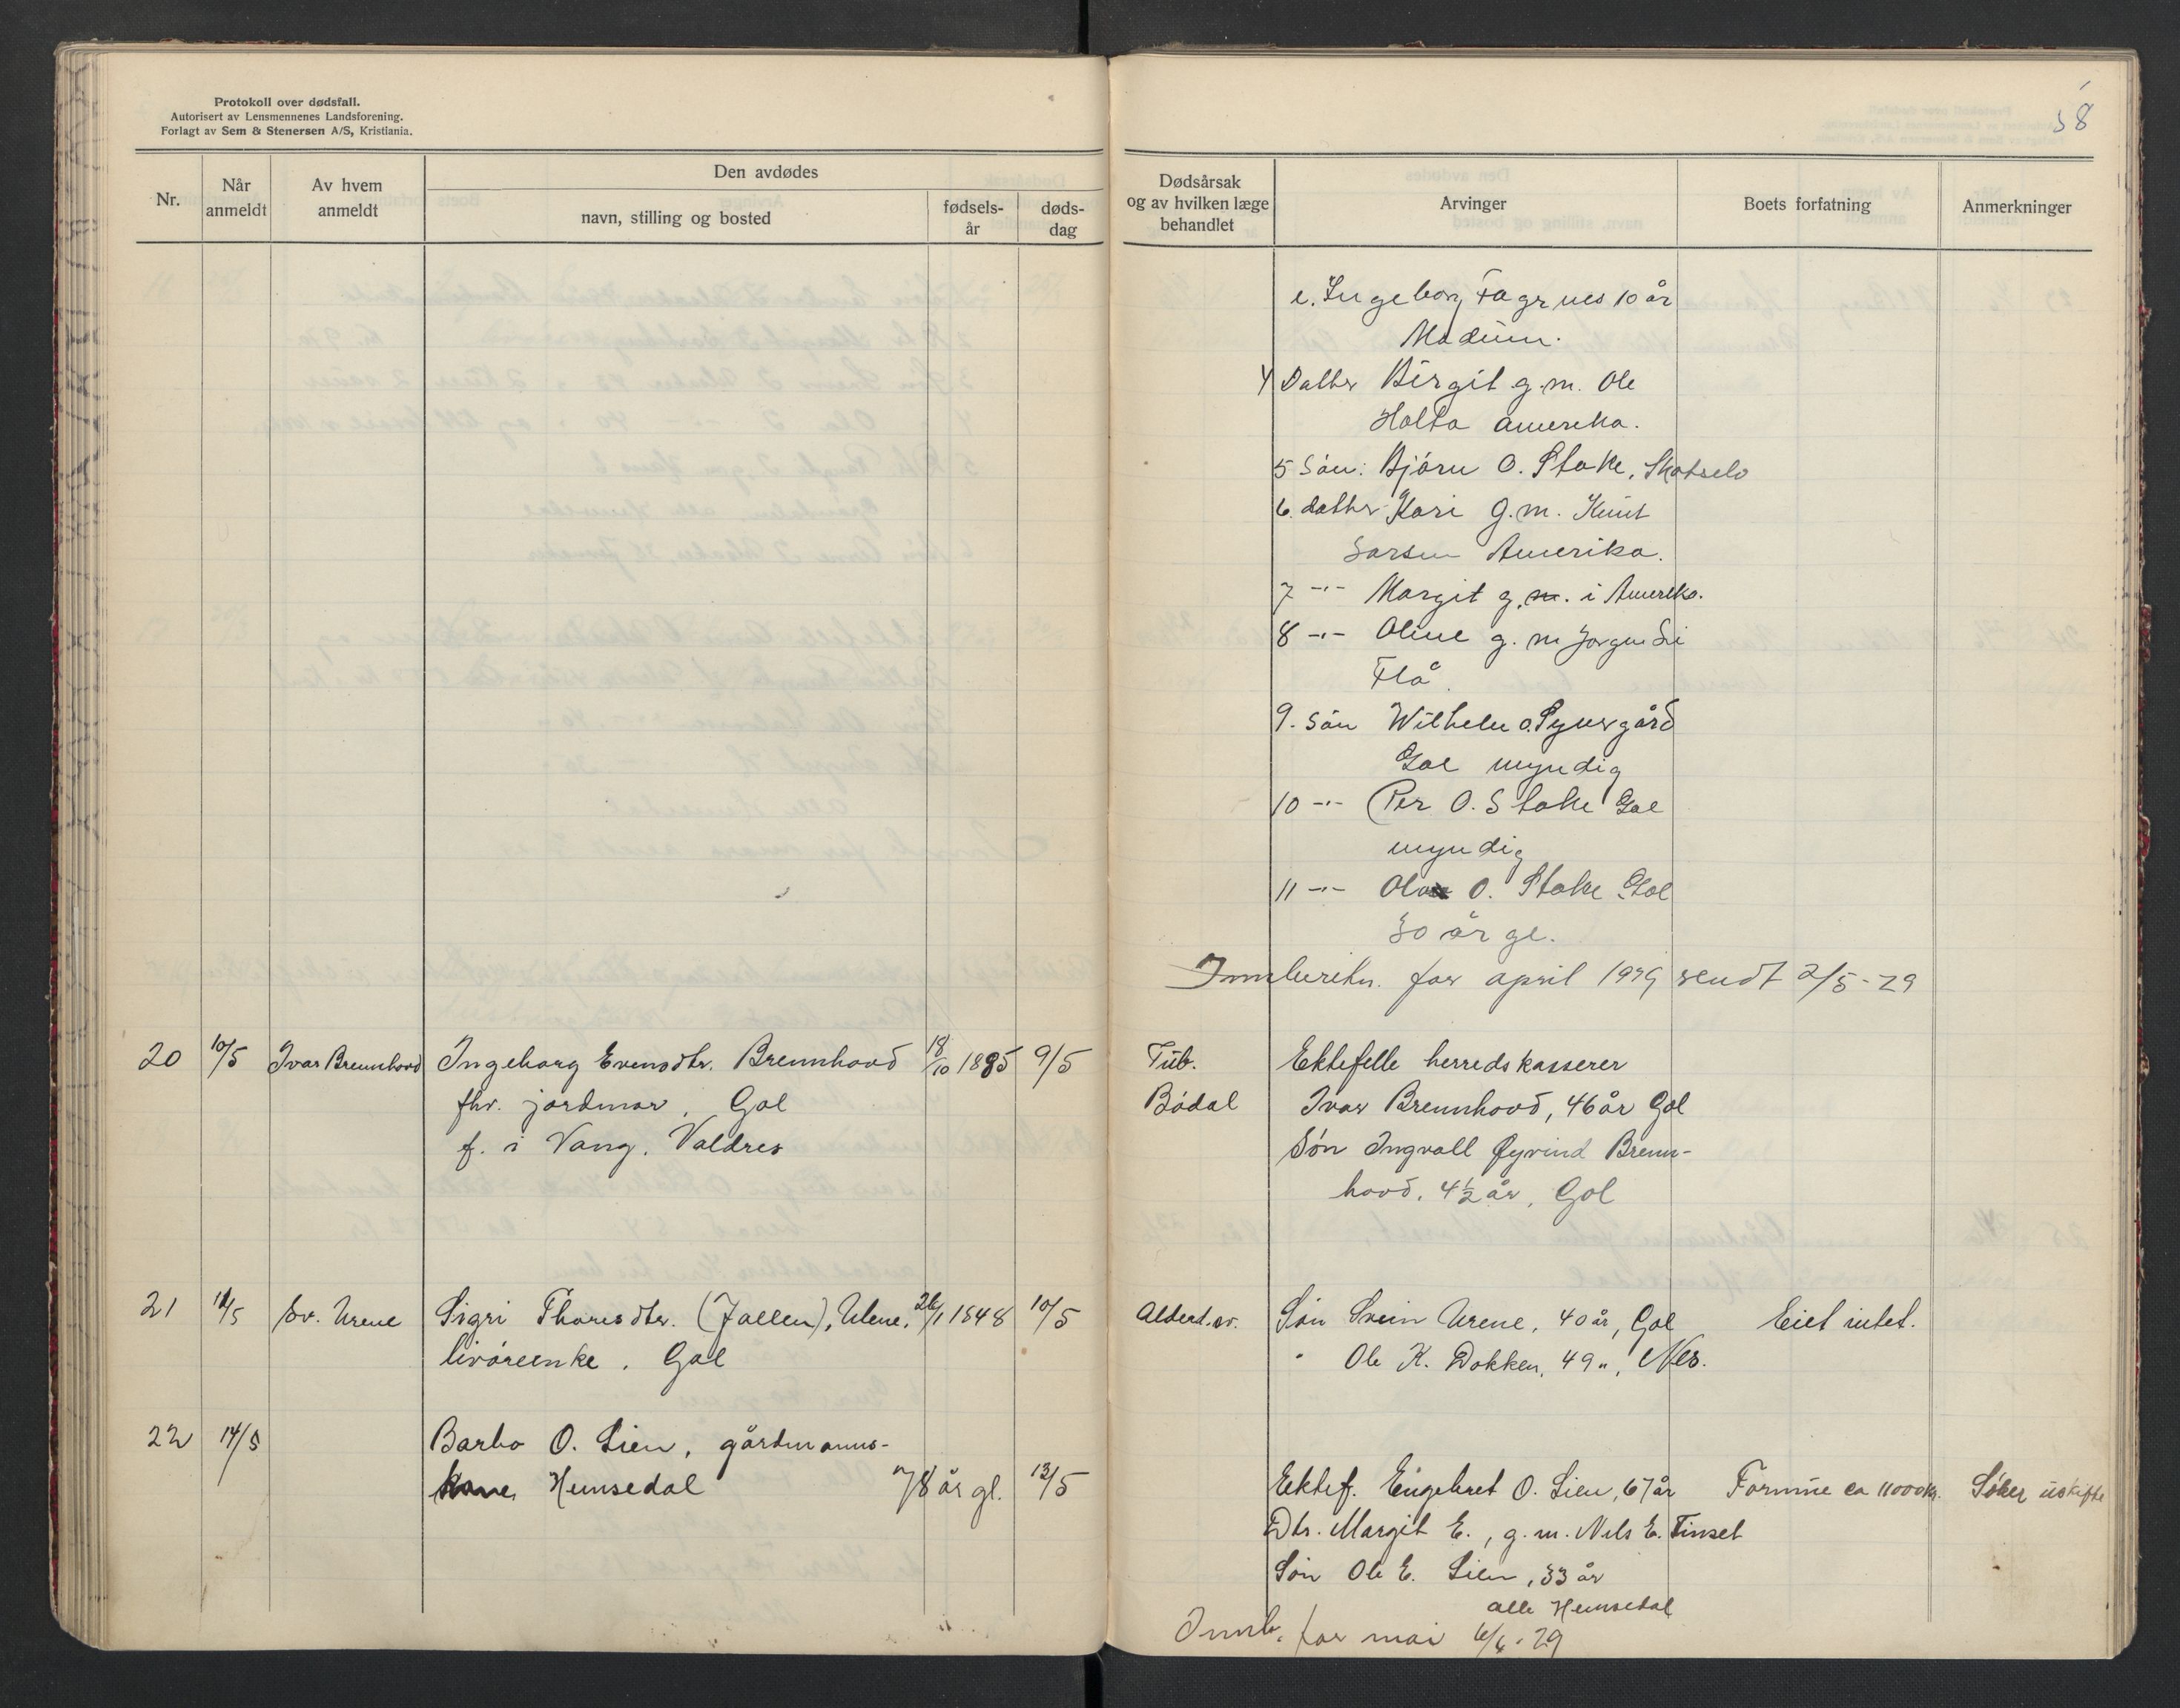 Protokoll over dødsfall.
Autorisert av Lensmennenes Landsforening.
Forlagt av Sem & Stenersen A/S, Kristiania.
Nr.
Når anmeldt
Av hvem anmeldt
Den avdødes
navn, stilling og bosted
fødselsår
dødsdag
58
Dødsårsak og av hvilken læge behandlet
Arvinger
Boets forfatning
Anmerkninger
e. Ingeborg Fagrnes 10 år
Modum.
4 Datter Birgit g.m. Ole
Holto Amerika.
5 Sön: Björn O. Stake, Skotselv
6. datter Kari g.m. Knut
Larsen Amerika.
7 -"- Margit g. m. i Amerika.
8 -"- Oline g. m Jorgen Li
Flå.
9. Sön Wilhelm O. Synsgård
Gol myndig
10 -"- Per O. Stake Gol
myndig
11 -"- Ola O. Stake Gol
30 år gl.
Innberetn. for april 1929 sendt 2/5-29
20 10/5 Ivar Brennhovd Ingeborg Evensdtr. Brennhovd 18/10 1885 9/5 Tub. Ektefelle herredskasserer
fhv. jordmor, Gol Bödal Ivar Brennhovd, 46 år Gol
f. i Vang, Valdres Søn Ingvall Øyvind Brenn-
hovd, 4½ år, Gol
21 11/5 Sv. Urene Sigri Thoresdtr. (Jallen), Urene, 26/1 1848 10/5 Alderd.sv. Sön Svein Urene, 40 år, Gol Eiet intet.
livöreenke, Gol " Ole K. Dokken, 49 ", Nes.
22 14/5 Barbo O. Lien, gårdmanns-
kone, Hemsedal 78 år gl. 13/5 Ektef. Engebret O. Lien, 67 år Formue ca 11000 kr. Söker uskifte
Dtr. Margit E., g.m. Nils E. Tinset
Sön Ole E. Lien, 33 år
alle Hemsedal
Innb. for mai 6/6-29